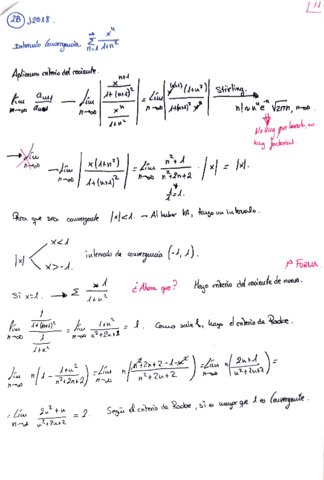 2B) J2018.
Intervalo Convergencia \sum_{n=1}^{\infty} \frac{x^n}{1+n^2}
Aplicamos criterio del cociente.
\lim_{n→∞} \frac{a_{n+1}}{a_n} → \lim_{n→∞} \left| \frac{\frac{x^{n+1}}{1+(n+1)^2}}{\frac{x^n}{1+n^2}} \right| = \lim_{n→∞} \left| \frac{x^{n+1}(1+n^2)}{1+(n+1)^2 x^n} \right| Stirling. n! ~ n^n e^{-n} \sqrt{2πn}, n→∞.
No hay que hacerlo, no
hay factorial.
→ \lim_{n→∞} \left| \frac{x(1+n^2)}{1+(n+1)^2} \right| = \lim_{n→∞} \frac{n^2+1}{n^2+2n+2} · |x| = |x|.
\frac{1}{1}=1.
Para que sea convergente |x|<1. → Al haber VA, tengo un intervalo.
|x| x<1 x>-1. intervalo de convergencia (-1, 1).
1ª FORMA
Si x=1. → \sum \frac{1}{1+n^2} ¿Ahora que? Hago criterio del cociente de nuevo.
\lim_{n→∞} \frac{\frac{1}{1+(n+1)^2}}{\frac{1}{1+n^2}} = \lim_{n→∞} \frac{1+n^2}{n^2+2n+2} = 1. Como sale 1, hago el criterio de Raabe.
\lim_{n→∞} n\left(1-\frac{1+n^2}{n^2+2n+2}\right) = \lim_{n→∞} n\left(\frac{n^2+2n+2-1-n^2}{n^2+2n+2}\right) = \lim_{n→∞} n\left(\frac{2n+1}{n^2+2n+2}\right) =
= \lim_{n→∞} \frac{2n^2+n}{n^2+2n+2} = 2. Según el criterio de Raabe, si es mayor que 1 es Convergente.